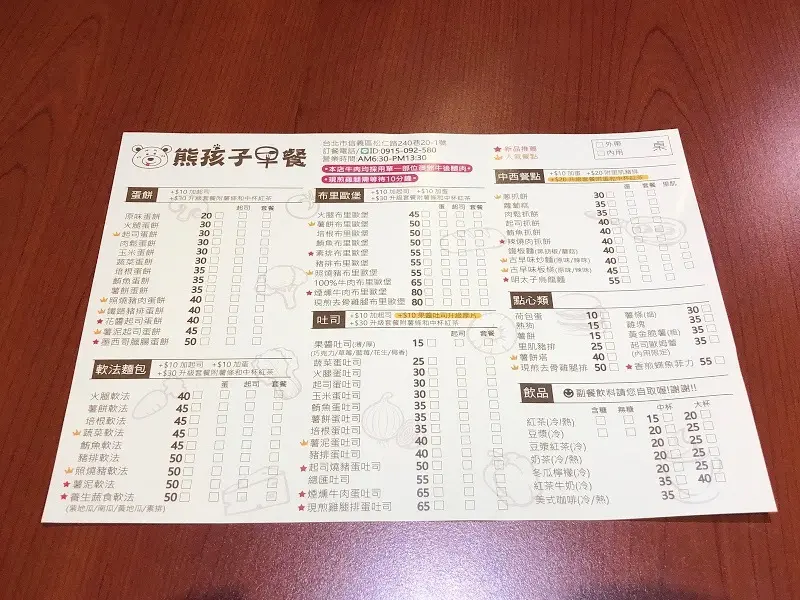 熊孩子早餐
台北市信義區松仁路240巷20-1號
訂餐電話/ID:0915-092-580
營業時間AM6:30-PM13:30
•本店牛肉均採用單一部位 牛 雞肉•
•現煎雞腿需等待10分鐘•
★新品推薦
人氣餐點
□外帶
□內用
桌
蛋餅
+$10 加起司
+$30 升級套餐附薯條和中杯紅茶
起司 套餐
原味蛋餅 20
火腿蛋餅 30
起司蛋餅 30
肉鬆蛋餅 30
玉米蛋餅 30
蔬菜蛋餅 30
培根蛋餅 35
鮪魚蛋餅 35
薯餅蛋餅 35
照燒豬肉蛋餅 40
鐵路豬排蛋餅 40
★花醬起司蛋餅 40
薯泥起司蛋餅 40
★墨西哥臘腸蛋餅 50
軟法麵包
+$10 加起司 +$10 加蛋
+$30 升級套餐附薯條和中杯紅茶
蛋 起司 套餐
火腿軟法 40
薯餅軟法 45
培根軟法 45
蔬菜軟法 45
鮪魚軟法 45
豬排軟法 50
照燒豬軟法 50
★薯泥軟法 50
★養生蔬食軟法 50
(紫地瓜/南瓜/黃地瓜/素排)
布里歐堡
+$10 加起司 +$10 加蛋
+$30 升級套餐附薯條和中杯紅茶
火腿布里歐堡 45
薯餅布里歐堡 50
培根布里歐堡 50
鮪魚布里歐堡 50
★素排布里歐堡 55
豬排布里歐堡 55
照燒豬布里歐堡 55
100%牛肉布里歐堡 65
★煙燻牛肉布里歐堡 80
現煎去骨雞腿布里歐堡 80
吐司
+$10 加起司 +$10 果醬吐司升級厚片
+$30 升級套餐附薯條和中杯紅茶
起司 套餐
果醬吐司(薄/厚) 15
(巧克力/草莓/藍莓/花生/椰香)
蔬菜蛋吐司 25
火腿蛋吐司 30
起司蛋吐司 30
玉米蛋吐司 30
鮪魚蛋吐司 35
薯餅蛋吐司 35
培根蛋吐司 35
薯泥蛋吐司 40
豬排蛋吐司 40
★起司燒豬蛋吐司 50
總匯吐司 55
★煙燻牛肉蛋吐司 65
★現煎雞腿排蛋吐司 65
中西餐點
+$10 加蛋 +$20 附里肌豬排
+$20 升級套餐附蛋和中杯紅茶
蛋 套餐 里肌
蔥抓餅 30
蘿蔔糕 35
肉鬆抓餅 35
起司抓餅 40
鮪魚抓餅 40
★辣燒肉抓餅 40
鐵板麵(黑胡椒/蘑菇) 40
古早味炒麵(原味/辣味) 45
古早味板條(原味/辣味) 45
★明太子烏龍麵 55
點心類
荷包蛋 10
熱狗 15
薯餅 15
里肌豬排 25
薯餅塔 40
現煎去骨雞腿排 50
薯條(細) 30
雞塊 35
黃金脆薯(粗) 35
起司歐姆蕾 35
(內用限定)
★香煎鱸魚菲力 55
飲品
副餐飲料請您自取喔!謝謝!!
含糖 無糖 中杯 大杯
紅茶(冷/熱) 15 20
豆漿(冷) 20 25
豆漿紅茶(冷) 20 25
奶茶(冷/熱) 20 25
冬瓜檸檬(冷) 20 25
紅茶牛奶(冷) 35 40
美式咖啡(冷/熱) 35